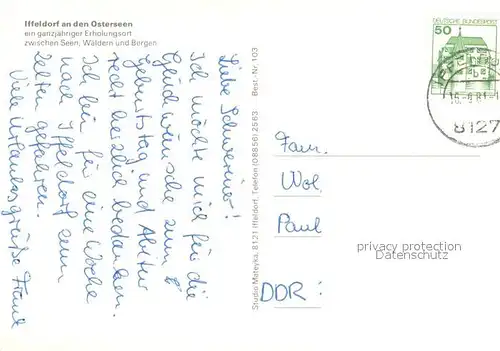 Iffeldorf an den Osterseen
ein ganzjähriger Erholungsort
zwischen Seen, Wäldern und Bergen
Liebe Schweriner!
Ich möchte mich für die
Glückwünsche zum
Geburtstag und Abitur
recht herzlich bedanken.
Ich bin für eine Woche
nach Iffeldorf zum
Zelten gefahren.
Viele Urlaubsgrüße Frank
Best.-Nr. 103
Studio Mateyka, 8121 Iffeldorf, Telefon (08856) 2563
DEUTSCHE BUNDESPOST
50
8127
Fam.
Wol
Paul
DDR:
privacy protection
Datenschutz